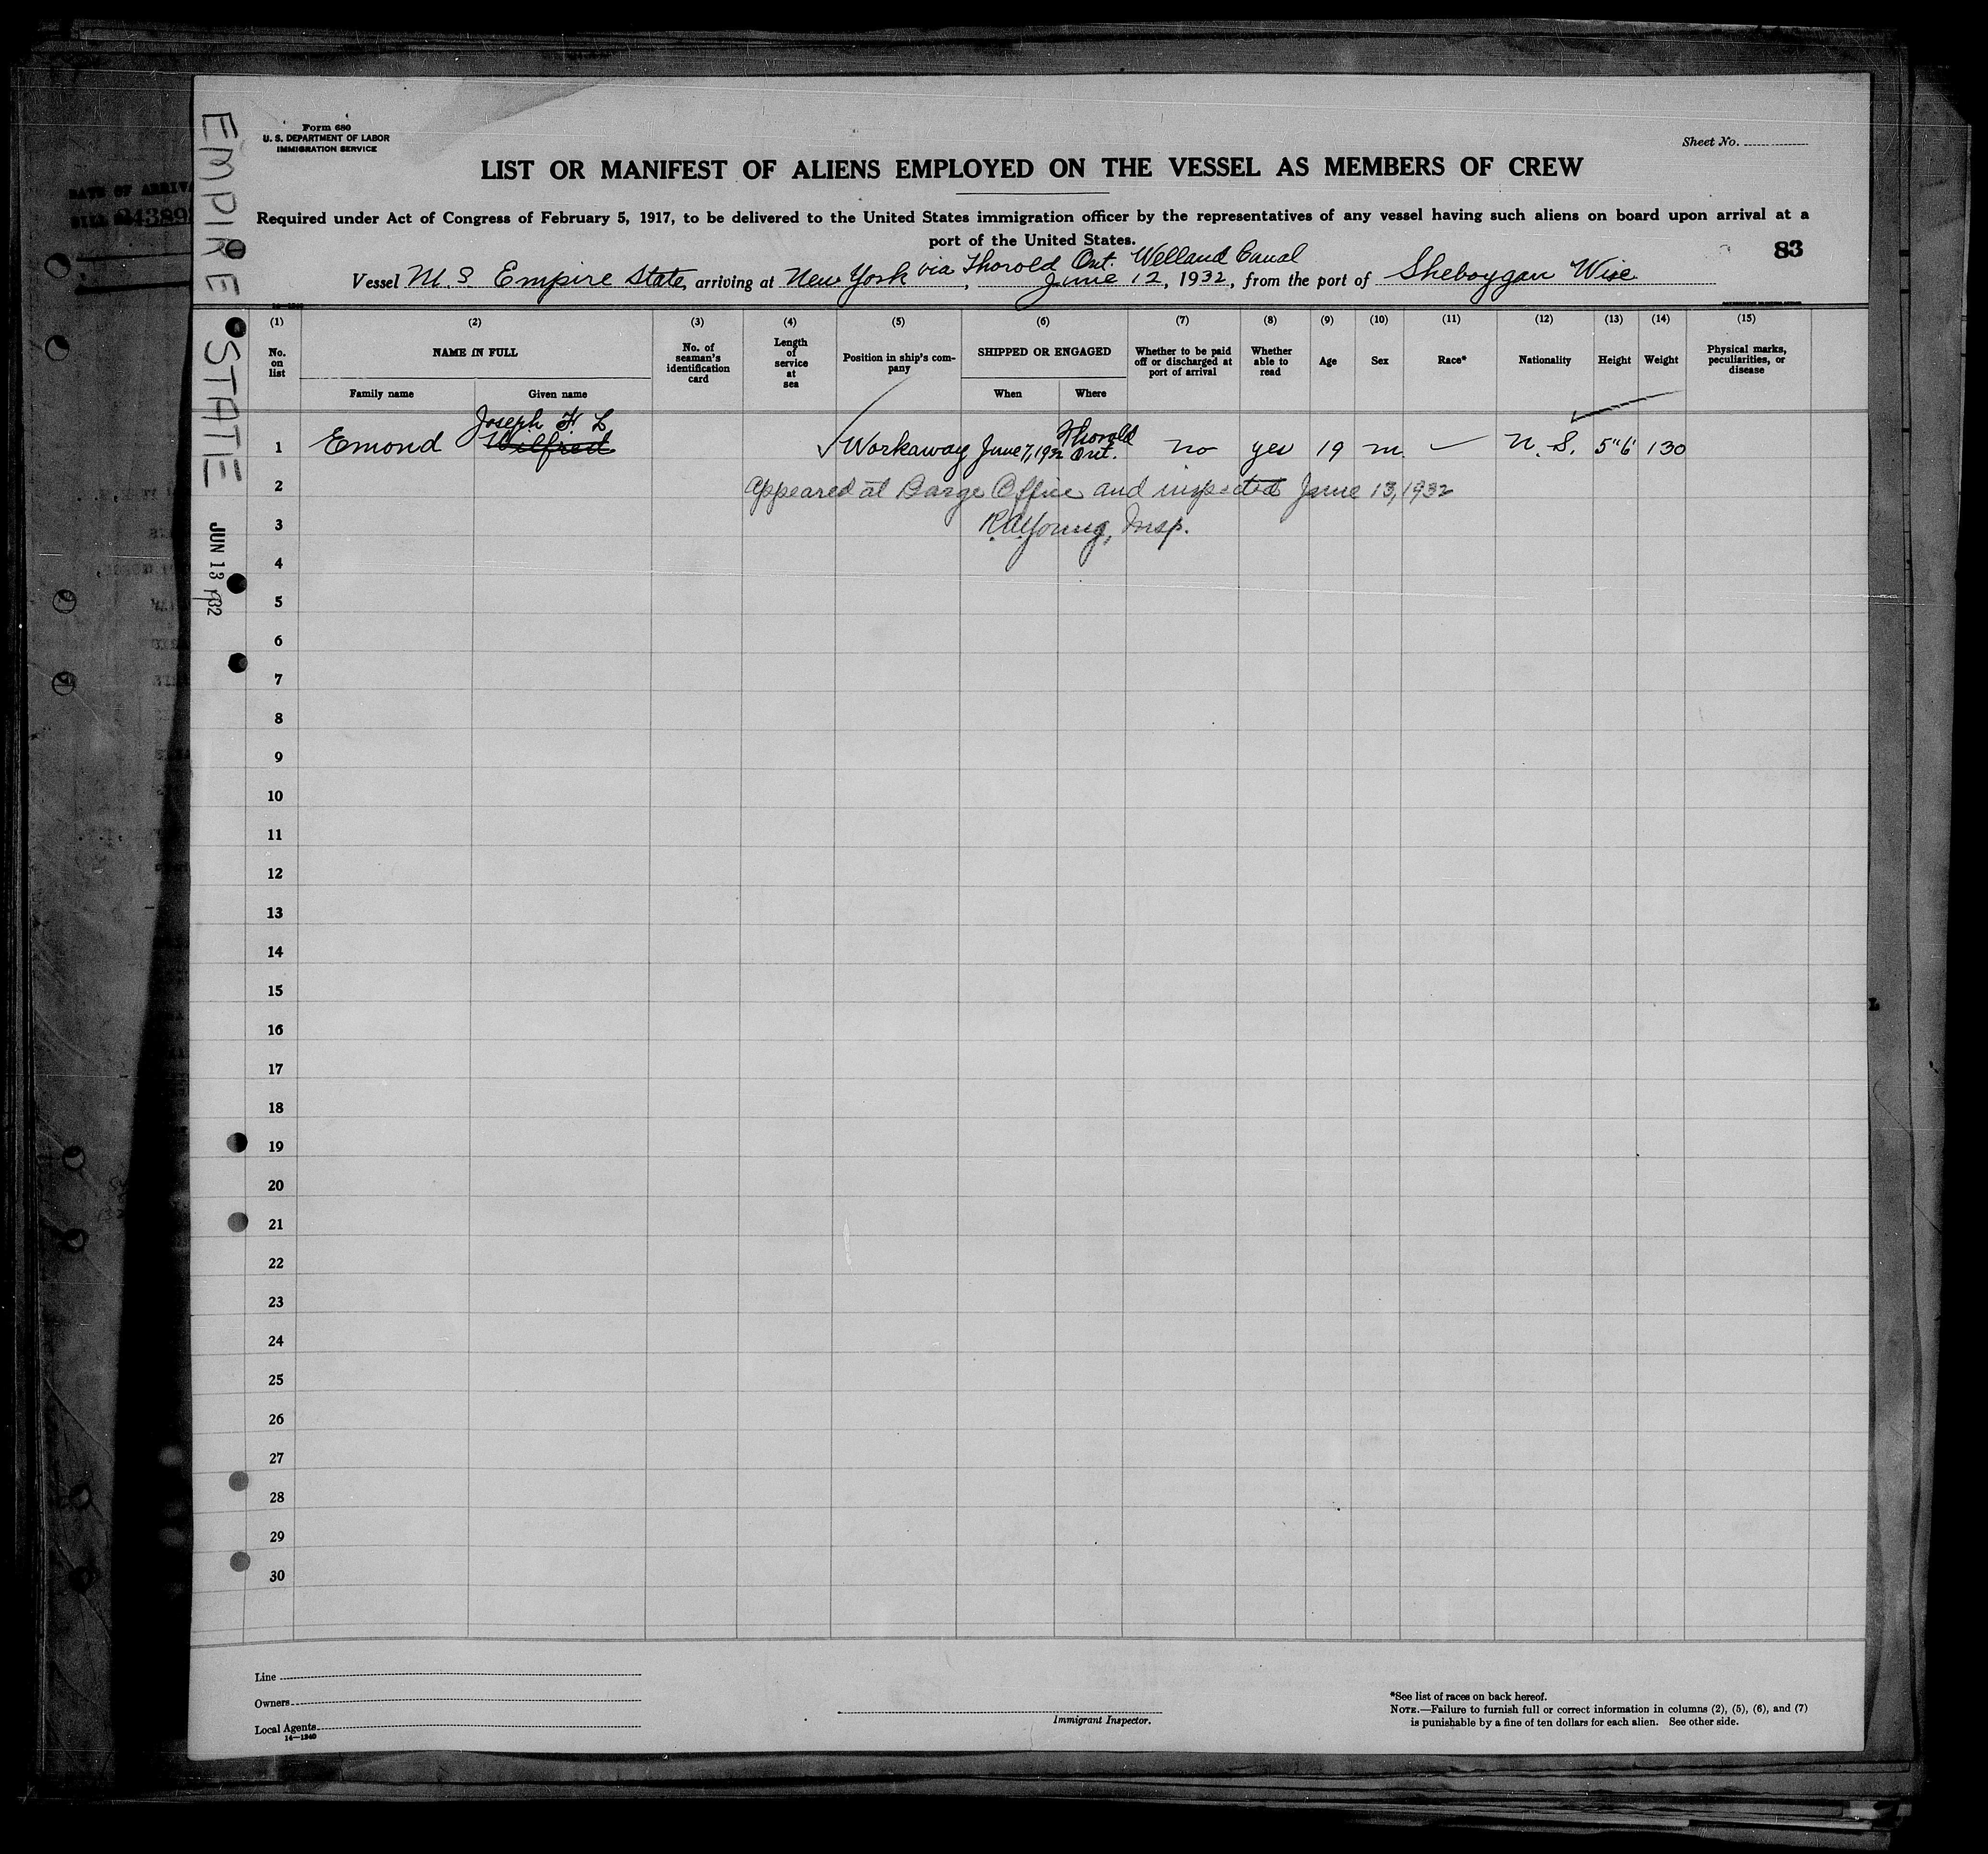 Form 680
U. S. DEPARTMENT OF LABOR
IMMIGRATION SERVICE
Sheet No.
LIST OR MANIFEST OF ALIENS EMPLOYED ON THE VESSEL AS MEMBERS OF CREW
Required under Act of Congress of February 5, 1917, to be delivered to the United States immigration officer by the representatives of any vessel having such aliens on board upon arrival at a
port of the United States.
83
via Thorold Ont. Welland Canal
Vessel M. S Empire State, arriving at New York, June 12, 1932, from the port of Sheboygan Wisc
EMPIRE STATE JUN 13 1932
DATE OF ARRIVA
BILL
(1) (2) (3) (4) (5) (6) (7) (8) (9) (10) (11) (12) (13) (14) (15)
No. on list
NAME IN FULL
Family name
Given name
No. of seaman's identification card
Length of service at sea
Position in ship's company
SHIPPED OR ENGAGED
When
Where
Whether to be paid off or discharged at port of arrival
Whether able to read
Age
Sex
Race*
Nationality
Height
Weight
Physical marks, peculiarities, or disease
Joseph H. L
1 Emond Wilfred Workaway June 7, 1932 Thorold Ont. no yes 19 m. U. S. 5"6' 130
2 Appeared at Barge Office and inspected June 13, 1932
3 R.A. Young, Insp.
4
5
6
7
8
9
10
11
12
13
14
15
16
17
18
19
20
21
22
23
24
25
26
27
28
29
30
Line
Owners
Local Agents
14—1240
Immigrant Inspector.
*See list of races on back hereof.
NOTE.—Failure to furnish full or correct information in columns (2), (5), (6), and (7)
is punishable by a fine of ten dollars for each alien. See other side.